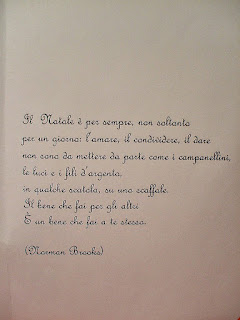 Il Natale è per sempre, non soltanto
per un giorno: l'amare, il condividere, il dare
non sono da mettere da parte come i campanellini,
le luci e i fili d'argento
in qualche scatola, su uno scaffale.
Il bene che fai per gli altri
È un bene che fai a te stesso.
(Norman Brooks)